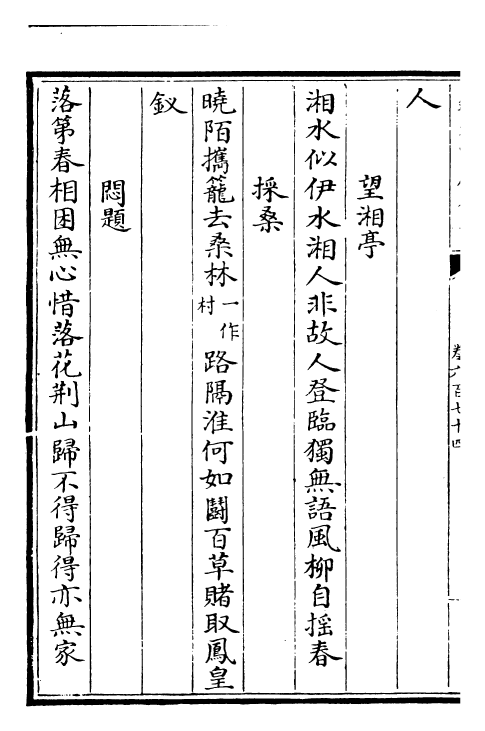 卷六百七十四
人
望湘亭
湘水似伊水湘人非故人登臨獨無語風柳自搖春
採桑
曉陌攜籠去桑林一作村路隔淮何如鬬百草賭取鳳皇
釵
悶題
落第春相困無心惜落花荆山歸不得歸得亦無家